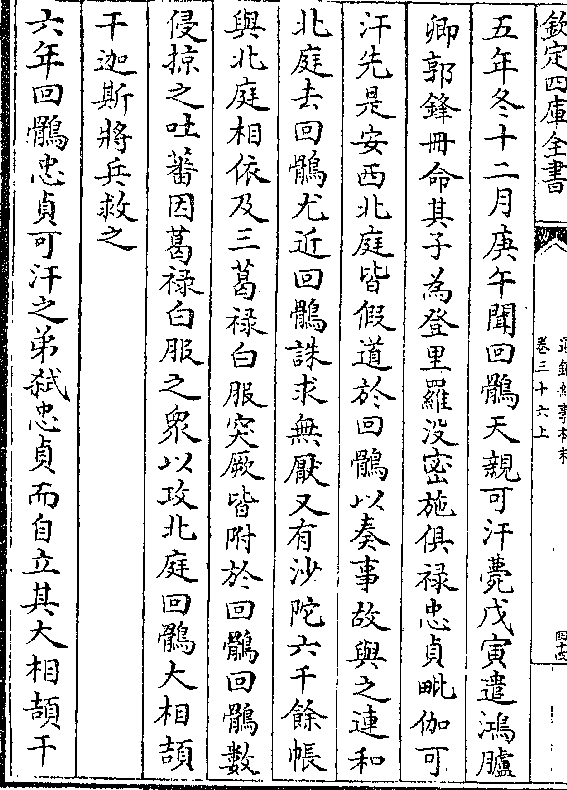 欽定四庫全書
通鑑紀事本末
卷三十六上
五年冬十二月庚午聞回鶻天親可汗薨戊寅遣鴻臚
卿郭鋒冊命其子為登里羅没密施俱禄忠貞毗伽可
汗先是安西北庭皆假道於回鶻以奏事故與之連和
北庭去回鶻尤近回鶻誅求無厭又有沙陀六千餘帳
與北庭相依及三葛禄白服突厥皆附於回鶻回鶻數
侵掠之吐蕃因葛禄白服之衆以攻北庭回鶻大相頡
干迦斯將兵救之
六年回鶻忠貞可汗之弟弑忠貞而自立其大相頡干